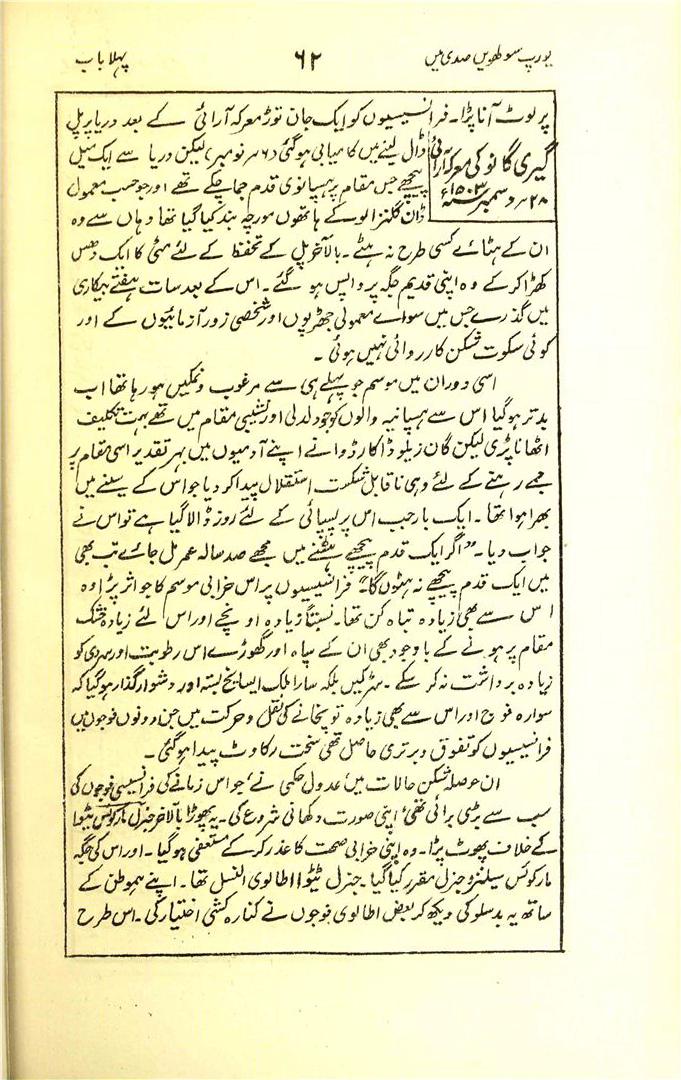 یورپ سولھویں صدی میں ۶۲ پہلا باب
پر لوٹ آنا پڑا۔ فرانسیسیوں کو ایک جان توڑ معرکہ آرائی کے بعد دریا پر پل
گیری گانو کی معرکہ آرائی
۲۸ دسمبر ۱۵۰۳ء
ڈال لینے میں کامیابی ہوگئی (۶ نومبر) لیکن دریا سے ایک میل
پیچھے جس مقام پر ہسپانوی قدم جما چکے تھے اور جو حسب معمول
ڈان گلنزالو کے ہاتھوں مورچہ بند کیا گیا تھا وہاں سے وہ
ان کے ہٹائے کسی طرح نہ ہٹے۔ بالآخر پل کے تحفظ کے لئے مٹی کا ایک دھس
کھڑا کر کے وہ اپنی قدیم جگہ پر واپس ہو گئے۔ اس کے بعد سات ہفتے بیکاری
میں گذرے جس میں سوائے معمولی جھڑپوں اور شخصی زور آزمائیوں کے اور
کوئی سکوت شکن کارروائی نہیں ہوئی۔
اسی دوران میں موسم جو پہلے ہی سے مرغوب و نمکیں ہو رہا تھا اب
بدتر ہوگیا اس سے ہسپانیہ والوں کو جو دلدلی اور نشیبی مقام میں تھے بہت تکلیف
اٹھانا پڑی لیکن گان زیلو ڈاکارڈوا نے اپنے آدمیوں میں بہر تقدیر اسی مقام پر
جمے رہنے کے لئے وہی ناقابل شکست استقلال پیدا کر دیا جو اس کے سینے میں
بھرا ہوا تھا۔ ایک بار جب اس پر پسپائی کے لئے زور ڈالا گیا ہے تو اس نے
جواب دیا۔ "اگر ایک قدم پیچھے ہٹنے میں مجھے صد سالہ عمر مل جائے تب بھی
میں ایک قدم پیچھے نہ ہٹوں گا"۔ فرانسیسیوں پر اس خرابی موسم کا جو اثر پڑا وہ
اس سے بھی زیادہ تباہ کن تھا۔ نسبتاً زیادہ اونچے اور اس لئے زیادہ خشک
مقام پر ہونے کے باوجود بھی ان کے سپاہ اور گھوڑے اس رطوبت اور سردی کو
زیادہ برداشت نہ کر سکے۔ سڑکیں بلکہ سارا ملک ایسا یخ بستہ اور دشوار گذار ہوگیا کہ
سوارہ فوج اور اس سے بھی زیادہ توپخانے کی نقل و حرکت میں جن دونوں فوجوں میں
فرانسیسیوں کو تفوق و برتری حاصل تھی سخت رکاوٹ پیدا ہوگئی۔
ان حوصلہ شکن حالات میں عدول حکمی نے، جو اس زمانے کی فرانسیسی فوجوں کی
سب سے بڑی برائی تھی، اپنی صورت دکھانی شروع کی۔ یہ پھوڑا بالآخر جنرل مارکوئس ٹیٹوا
کے خلاف پھوٹ پڑا۔ وہ اپنی خرابی صحت کا عذر کر کے مستعفی ہوگیا۔ اور اس کی جگہ
مارکوئس سیلنزو جنرل مقرر کیا گیا۔ جنرل ٹیٹوا اطالوی النسل تھا۔ اپنے ہموطن کے
ساتھ یہ بدسلوکی دیکھ کر بعض اطالوی فوجوں نے کنارہ کشی اختیار کی۔ اس طرح